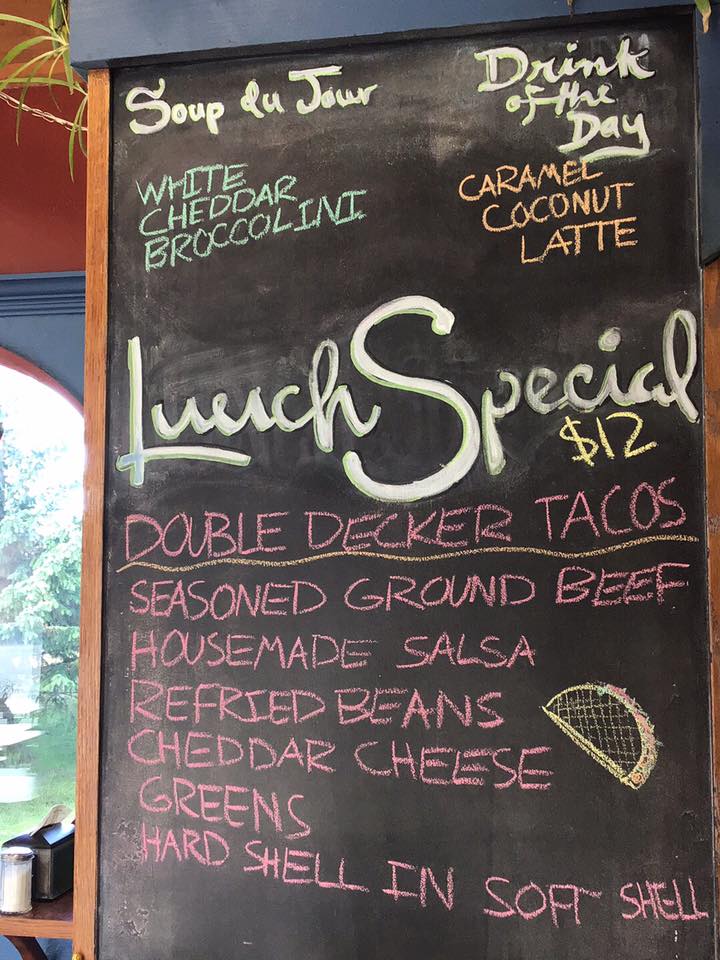 Soup du Jour
WHITE
CHEDDAR
BROCCOLINI
Drink
of the
Day
CARAMEL
COCONUT
LATTE
Lunch Special
$12
DOUBLE DECKER TACOS
SEASONED GROUND BEEF
HOUSEMADE SALSA
REFRIED BEANS
CHEDDAR CHEESE
GREENS
HARD SHELL IN SOFT SHELL